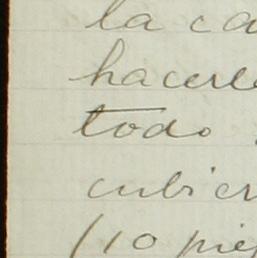 la ca
hacerl
todo
cubier
(10 pie